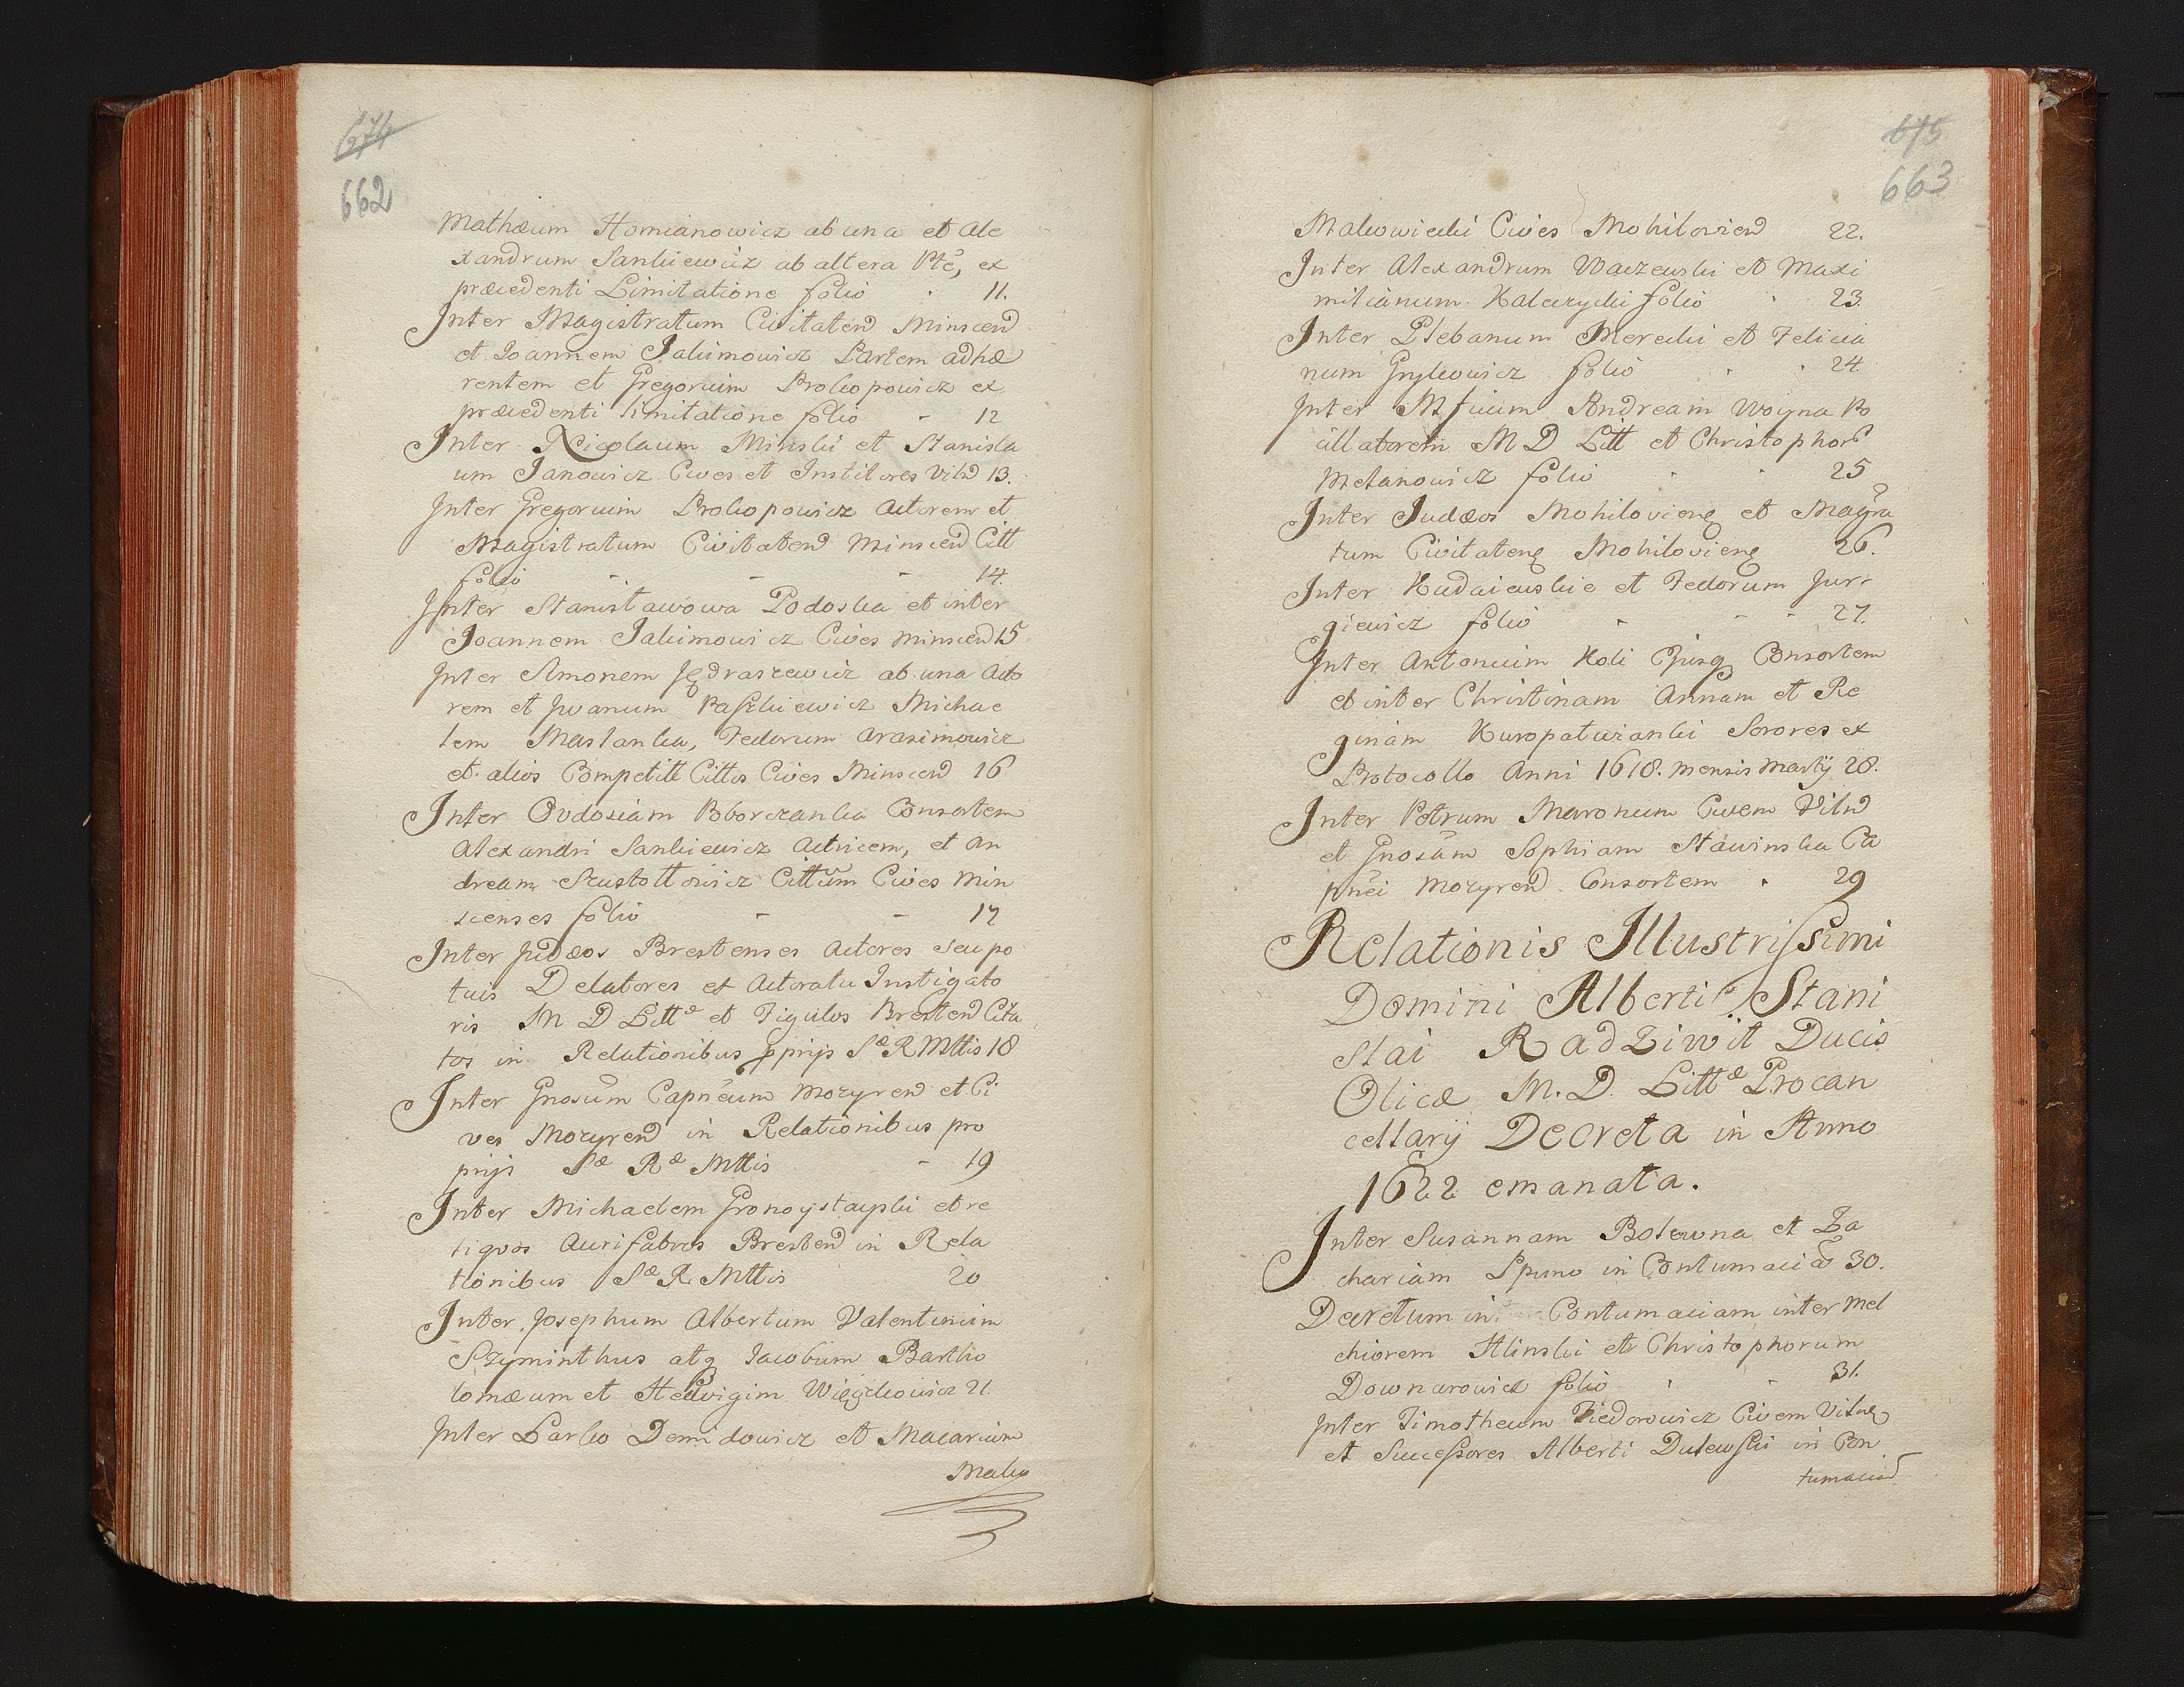 674
662
Mathæum Homianowicz ab una et Ale
xandrum Sankiewicz ab altera Pte, ex
præcedenti Limitatione folio 11.
Inter Magistratum Civitaten Minscen
et Joannem Jakimowicz Partem adhæ
rentem et Gregorium Prokopowicz ex
præcedenti limitatione folio - 12
Inter Nicolaum Minski et Stanisla
um Janowicz Cives et Institores Viln 13.
Inter Gregorium Prokopowicz Actorem et
Magistratum Civitaten Minscen Citt
folio - - - 14.
Inter Stanisławowa Podoska et inter
Joannem Jakimowicz Cives Minscen 15
Inter Simonem Jędraszewicz ab una Acto
rem et Jwanum Wasilkiewicz Michae
lem Maslanka, Fedorum Arasimowicz
et alios Competitt Cittos Cives Minscen 16
Inter Ovdosiam Boborczanka Consortem
Alexandri Sankiewicz Actricem, et An
dream Szustoltowicz Cittum Cives Min
scenses folio - - 17
Inter Judæos Brestenses Actores seu po
tuis Delatores et Actoratu Instigato
ris M D Littæ et Figulos Bresten Cita
tos in Relationibus pprijs Sæ R Mttis 18
Inter Gnosum Capneum Mozyren et Ci
ves Mozyren in Relationibus pro
prijs Sæ Ræ Mttis - 19
Inter Michaelem Gronoystayski et re
liquos Aurifabros Bresten in Rela
tionibus Sæ R. Mttis 20
Inter Josephum Albertum Valentinum
Szyminthus atq Jacobum Bartho
lomæum et Hedvigim Więckowicz 21.
Inter Larko Demidowicz et Macarium
Mako
675
663
Makowiecki Cives Mohilovien 22.
Inter Alexandrum Waczewski et Maxi
milianum Kaleczycki folio 23.
Inter Plebanum Merecki et Felicia
num Grykowicz folio 24.
Inter Mficum Andream Woyna Po
cillatorem M D Litt et Christophor
Metanowicz folio 25
Inter Judæos Mohilovienq et Magra
tum Civitatenq Mohilovienq 26.
Inter Kudaiewskie et Fedorum Jur
giewicz folio - - - 27.
Inter Antonium Koli Ejusq Consortem
et inter Christinam Annam et Re
ginam Kuropatwianki Sorores ex
Protocollo Anni 1618. mensis Martij 28.
Inter Petrum Maronum Civem Viln
et Gnosam Sophiam Stawinska Ca
pnei Mozyren Consortem 29
Relationis Illustrissimi
Domini Alberti Stani
slai Radziwil Ducis
Olicæ M. D. Littæ Procan
cellarij Decreta in Anno
1622 emanata.
Inter Susannam Bolewna et Za
chariam Spuno in Contumacia 30.
Decretum in Contumaciam inter Mel
chiorem Hlinski et Christophorum
Downarowicz folio 31.
Inter Timotheum Fiedorowicz Civem Vilnq
et Successores Alberti Dulewski in Con
tumaciam